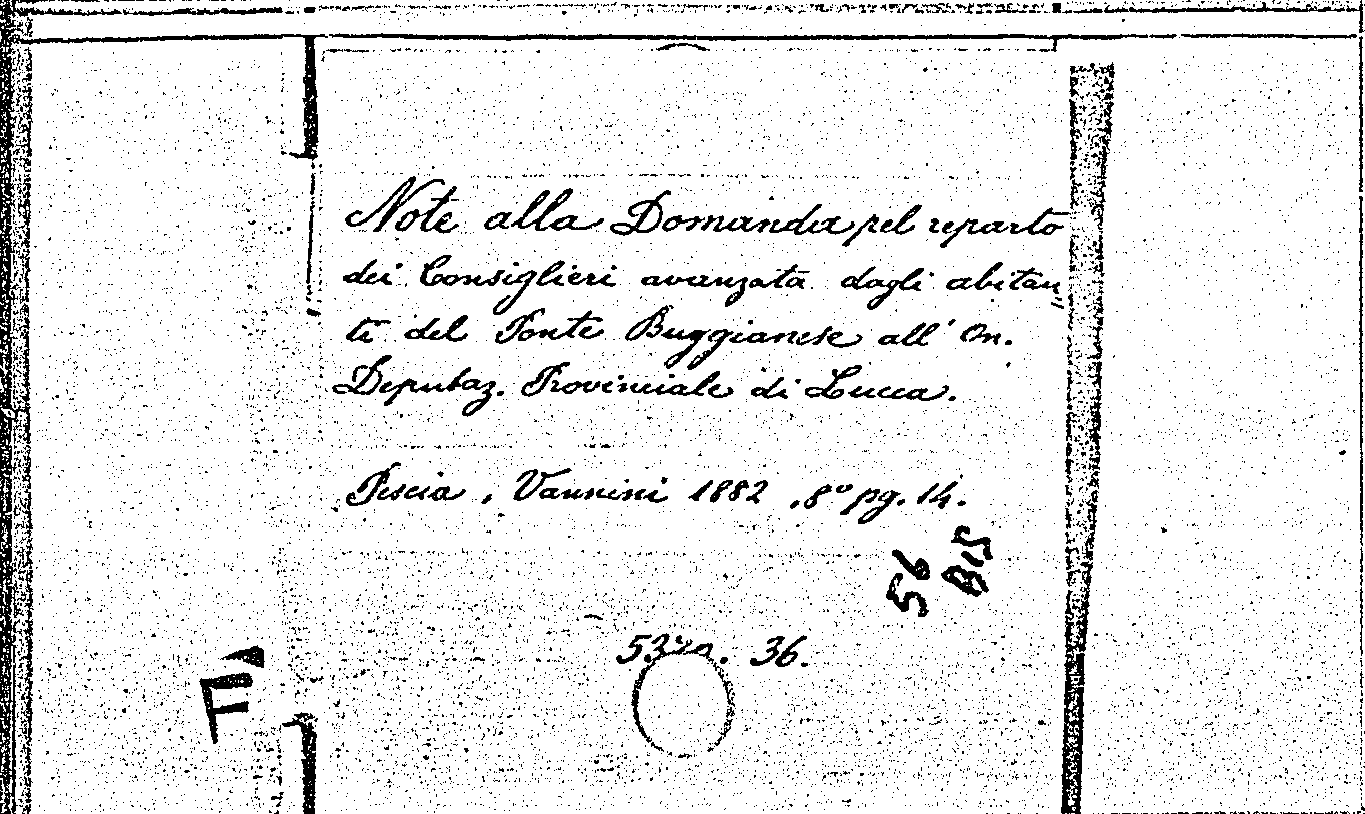 Note alla Domanda pel reparto
dei Consiglieri avanzata dagli abitan„
ti del Ponte Buggianese all' On.
Deputaz. Provinciale di Lucca.
Pescia, Vannini 1882 .8º pg. 14.
56
BIS
36.